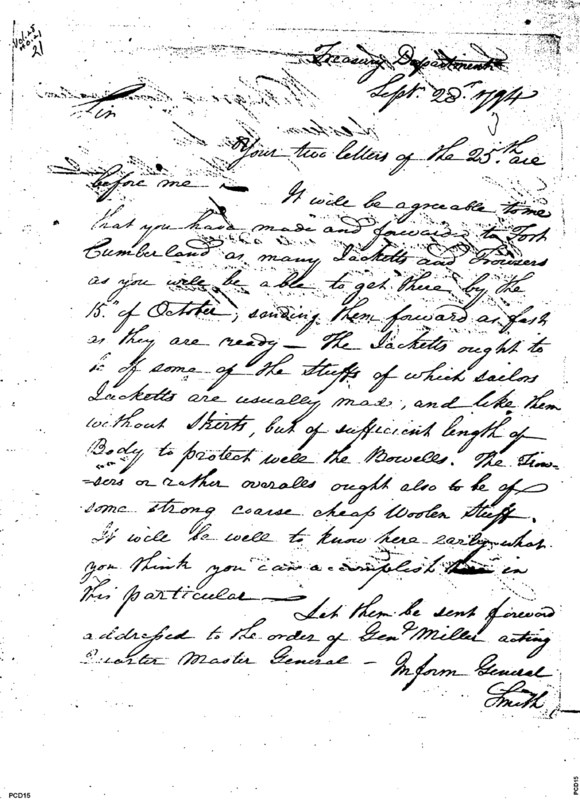 21
Treasury Department
Sept. 28th 1794
Sir
Your two letters of the 25th are
before me — It will be agreable to me
that you have made and forward to Fort
Cumberland as many Jacketts and Trowsers
as you will be able to get there by the
15th of October, sending them forward as fast
as they are ready — The Jacketts ought to
be of some of the Stuffs of which sailors
Jacketts are usually made, and like them
without Skirts, but of sufficient length of
Body to protect well the Bowells. The Trow-
=sers or rather overalls ought also to be of
some strong coarse cheap Woolen Stuff.
It will be well to know here early what
you think you can accomplish in
this particular —
Let them be sent forward
addressed to the order of Genl Miller acting
Quarter Master General — Inform General
Smith
PCD15
PCD15